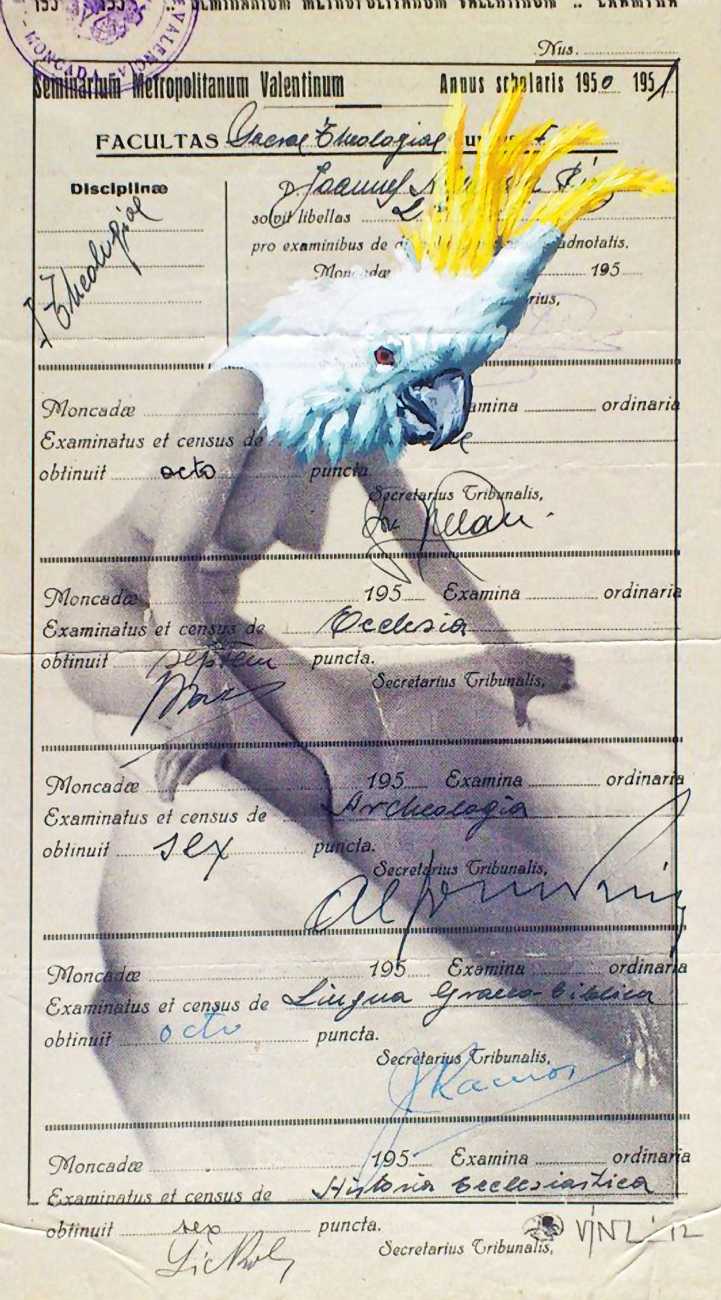 SEMINARIUM METROPOLITANUM VALENTINUM .. EXAMINA
MONCADA VALENCIA
Nus.
Seminarium Metropolitanum Valentinum
Annus scholaris 1950 1951
FACULTAS Sacrae Theologiae
Disciplinæ
Theologiae
D. Joannes
solvit libellas
pro examinibus de adnotatis.
Moncadæ 195
Moncadæ amina ordinaria
Examinatus et census de
obtinuit octo puncta.
Secretarius Tribunalis,
Moncadæ 195 Examina ordinaria
Examinatus et census de Ecclesia
obtinuit septem puncta.
Secretarius Tribunalis,
Moncadæ 195 Examina ordinaria
Examinatus et census de Archeologia
obtinuit sex puncta.
Secretarius Tribunalis,
Moncadæ 195 Examina ordinaria
Examinatus et census de Lingua Graeco-biblica
obtinuit octo puncta.
Secretarius Tribunalis,
J. Ramos
Moncadæ 195 Examina ordinaria
Examinatus et census de Historia Ecclesiastica
obtinuit sex puncta.
Secretarius Tribunalis,
VINZ '12